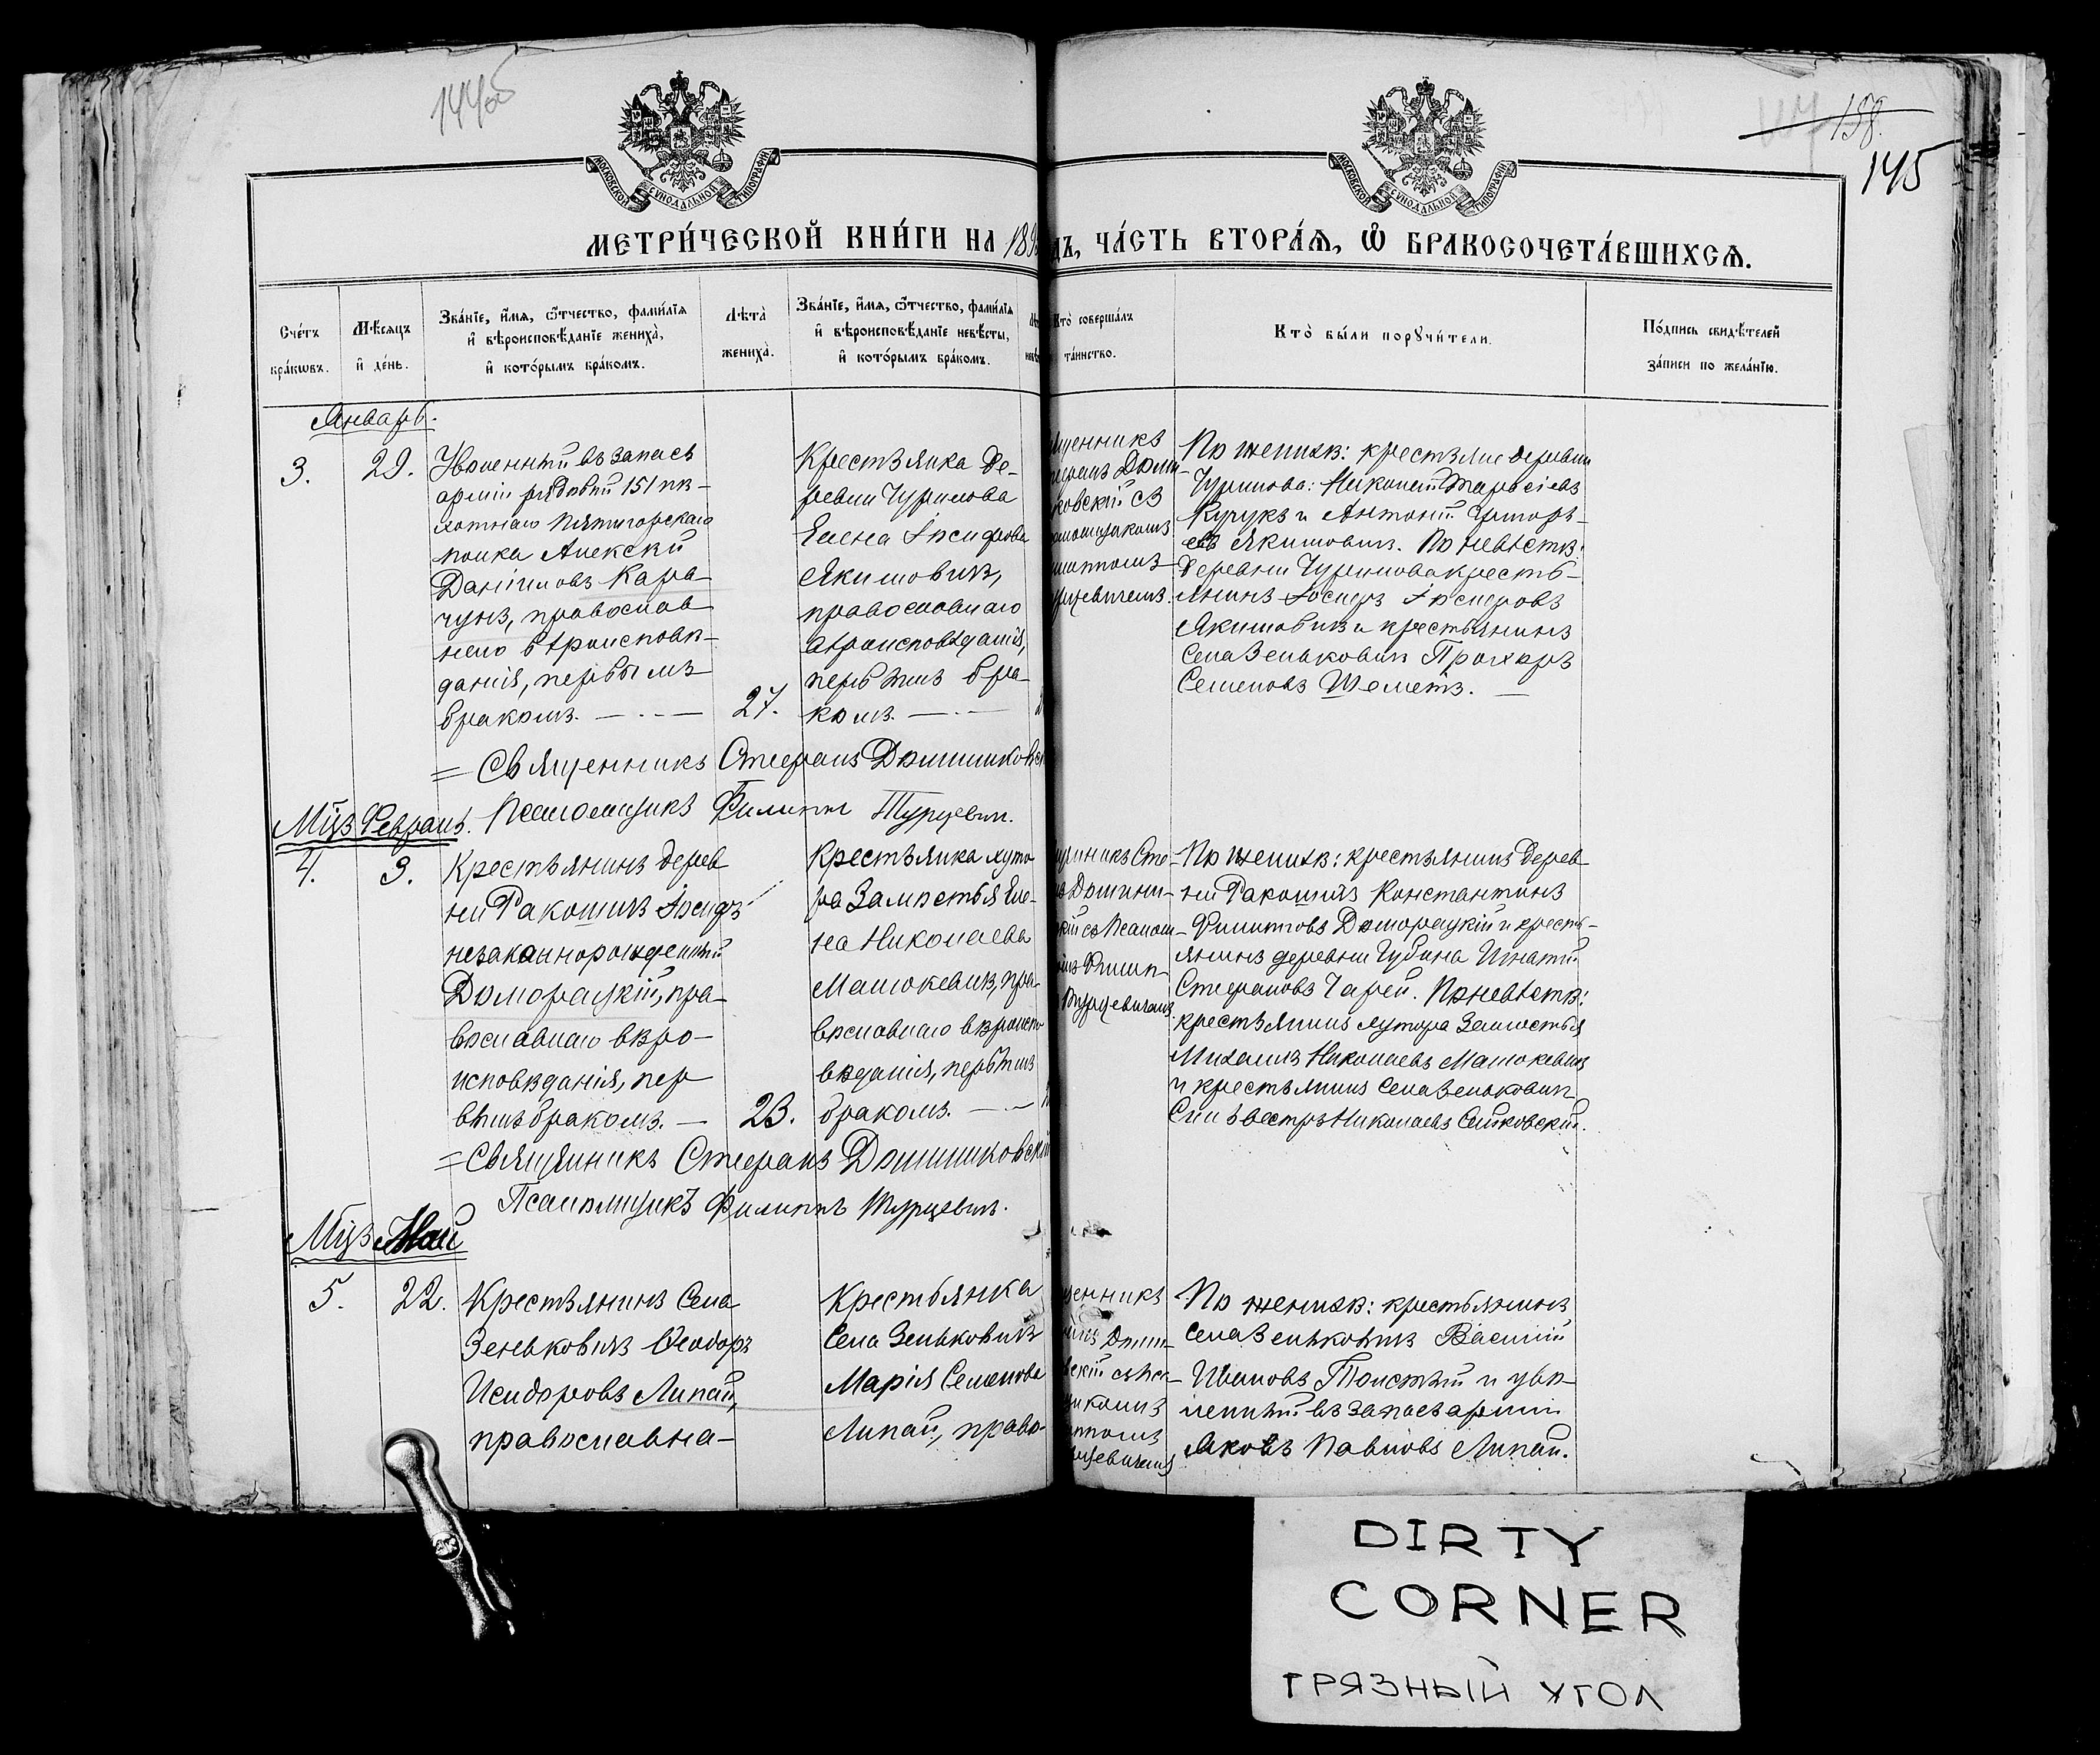 144об
158.
145
МОСКОВСКОЙ СѴНОДАЛЬНОЙ ТИПОГРАФІИ
МОСКОВСКОЙ СѴНОДАЛЬНОЙ ТИПОГРАФІИ
МЕТРИ́ЧЕСКОЙ КНИ́ГИ НА 189
ДЪ, ЧА́СТЬ ВТОРА́Я, Ѽ БРАКОСОЧЕТА́ВШИХСЯ.
Сче́тъ
бра́кѡвъ.
Мѣ́сяцъ
и҆ де́нь.
Зва́нїе, и҆́мя, ѻ҆́тчество, фами́лїя
и҆ вѣроисповѣ́данїе жениха̀,
и҆ кото́рымъ бра́комъ.
Лѣта̀
жениха̀.
Зва́нїе, и҆́мя, ѻ҆́тчество, фами́лїя
и҆ вѣроисповѣ́данїе невѣ́сты,
и҆ кото́рымъ бра́комъ.
Кто̀ соверша́лъ
та́инство.
Кто̀ бы́ли порꙋчи́тели.
По́дпись свидѣ́телей
за́писи по жела́нїю.
Январь.
3.
29.
Уволенный въ запасъ
арміи рядовый 151 пѣ-
хотнаго Пятигорскаго
полка Алексѣй
Даніиловъ Кара-
чунъ, православ
наго вѣроисповѣ-
данія, первымъ
бракомъ. — . —
27.
Крестьянка де-
ревни Чурилова
Елена Іосифова
Якимовичъ,
православнаго
вѣроисповѣданія,
первымъ бра-
комъ. — . —
щенникъ
ефанъ Доми-
ковскій съ
аломщикомъ
иппомъ
урцевичемъ.
По женихѣ: крестьяне деревни
Чурилова: Николай Тарасіевъ
Кучукъ и Антоній Григорь-
евъ Якимовичъ. По невѣстѣ:
деревни Чурилова кресть-
янинъ Іосифъ Іосифовъ
Якимовичъ и крестьянинъ
села Зеньковичъ Прохоръ
Семеновъ Шеметъ. —
= Священникъ Стефанъ Доминиковск
Псаломщикъ Филиппъ Турцевич.
Мцъ Февраль.
4.
3.
Крестьянинъ дерев
ни Ракошичъ Іосифъ
незаконнорожденный
Доморацкій, пра-
вославнаго вѣро-
исповѣданія, пер
вымъ бракомъ. —
23.
Крестьянка хуто
ра Замостья Еле-
на Николаева
Матюкевичъ, пра-
вославнаго вѣроиспо
вѣданія, первымъ
бракомъ. — . —
щенникъ Сте-
нъ Домини-
кій съ Псалом-
комъ Филип-
Турцевичемъ.
По женихѣ: крестьянинъ дерев-
ни Ракошичъ Константинъ
Филипповъ Доморацкій и кресть-
янинъ деревни Губина Игнатій
Стефановъ Чарей. По невѣстѣ:
крестьянинъ хутора Замостья
Михаилъ Николаевъ Матюкевичъ
и крестьянинъ села Зеньковичъ
Сильвестръ Николаевъ Сетковскій.
= Священникъ Стефанъ Доминиковскій
Псаломщикъ Филиппъ Турцевичъ.
Мцъ Май
5.
22.
Крестьянинъ села
Зеньковичъ Ѳеодоръ
Исидоровъ Липай,
православна-
Крестьянка
села Зеньковичъ
Марія Семенова
Липай, право-
щенникъ
анъ Доми-
вскій съ Пса-
щикомъ
иппомъ
рцевичемъ
По женихѣ: крестьянинъ
села Зеньковичъ Василій
Ивановъ Толстый и уво-
ленный въ запасъ арміи
Яковъ Павловъ Липай.
DIRTY
CORNER
ГРЯЗНЫЙ УГОЛ